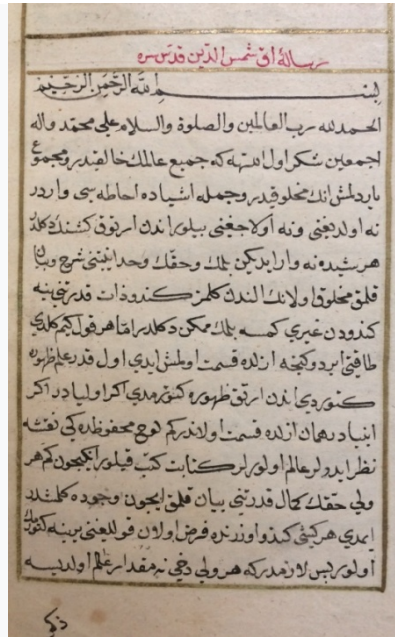 رسالهٔ اق شمس الدین قدس سره
بسم الله الرحمن الرحیم
الحمد لله رب العالمین والصلوة والسلام علی محمد واله
اجمعین شکر اول اللهه که جمیع عالمك خالقیدر ومجموع
یارادلمش انك مخلوقیدر وجمله اشیاده احاطه سی واردر
نه اولدیغنی ونه اولاجغنی بیلور اندن ارتوق کشنك دکلدر
هر شیده نه وار ایدیکن بلمك وحقك وحدانیتنی شرح وبیان
قلمق مخلوق اولانك الندن کلمز کندو ذات قدرتنی ینه
کندودن غیری کمسه بلمك ممکن دکلدر اما هر قول کیم کلدی
طاقتی ایردوکنجه ازلده قسمت اولمش ایدی اول قدر علم ظهوره
کتوردی اندن ارتق ظهوره کتورمدی اکر اولیادر اکر
انبیادر همان ازلده قسمت اولاندر کم لوح محفوظده کی نقشه
نظر ایدرلر عالم اولورلر کتابت کتب قیلورلر انکیچون کم هر
ولی حقك کمال قدرتنی بیان قلمق ایچون وجوده کلمشدر
ایمدی هر کشی کندو اوزرنده فرض اولان قولدیغنی یرینه کتورمك
اولور پس لازمدر که هر ولی دخی نه مقدار عالم اولدیسه